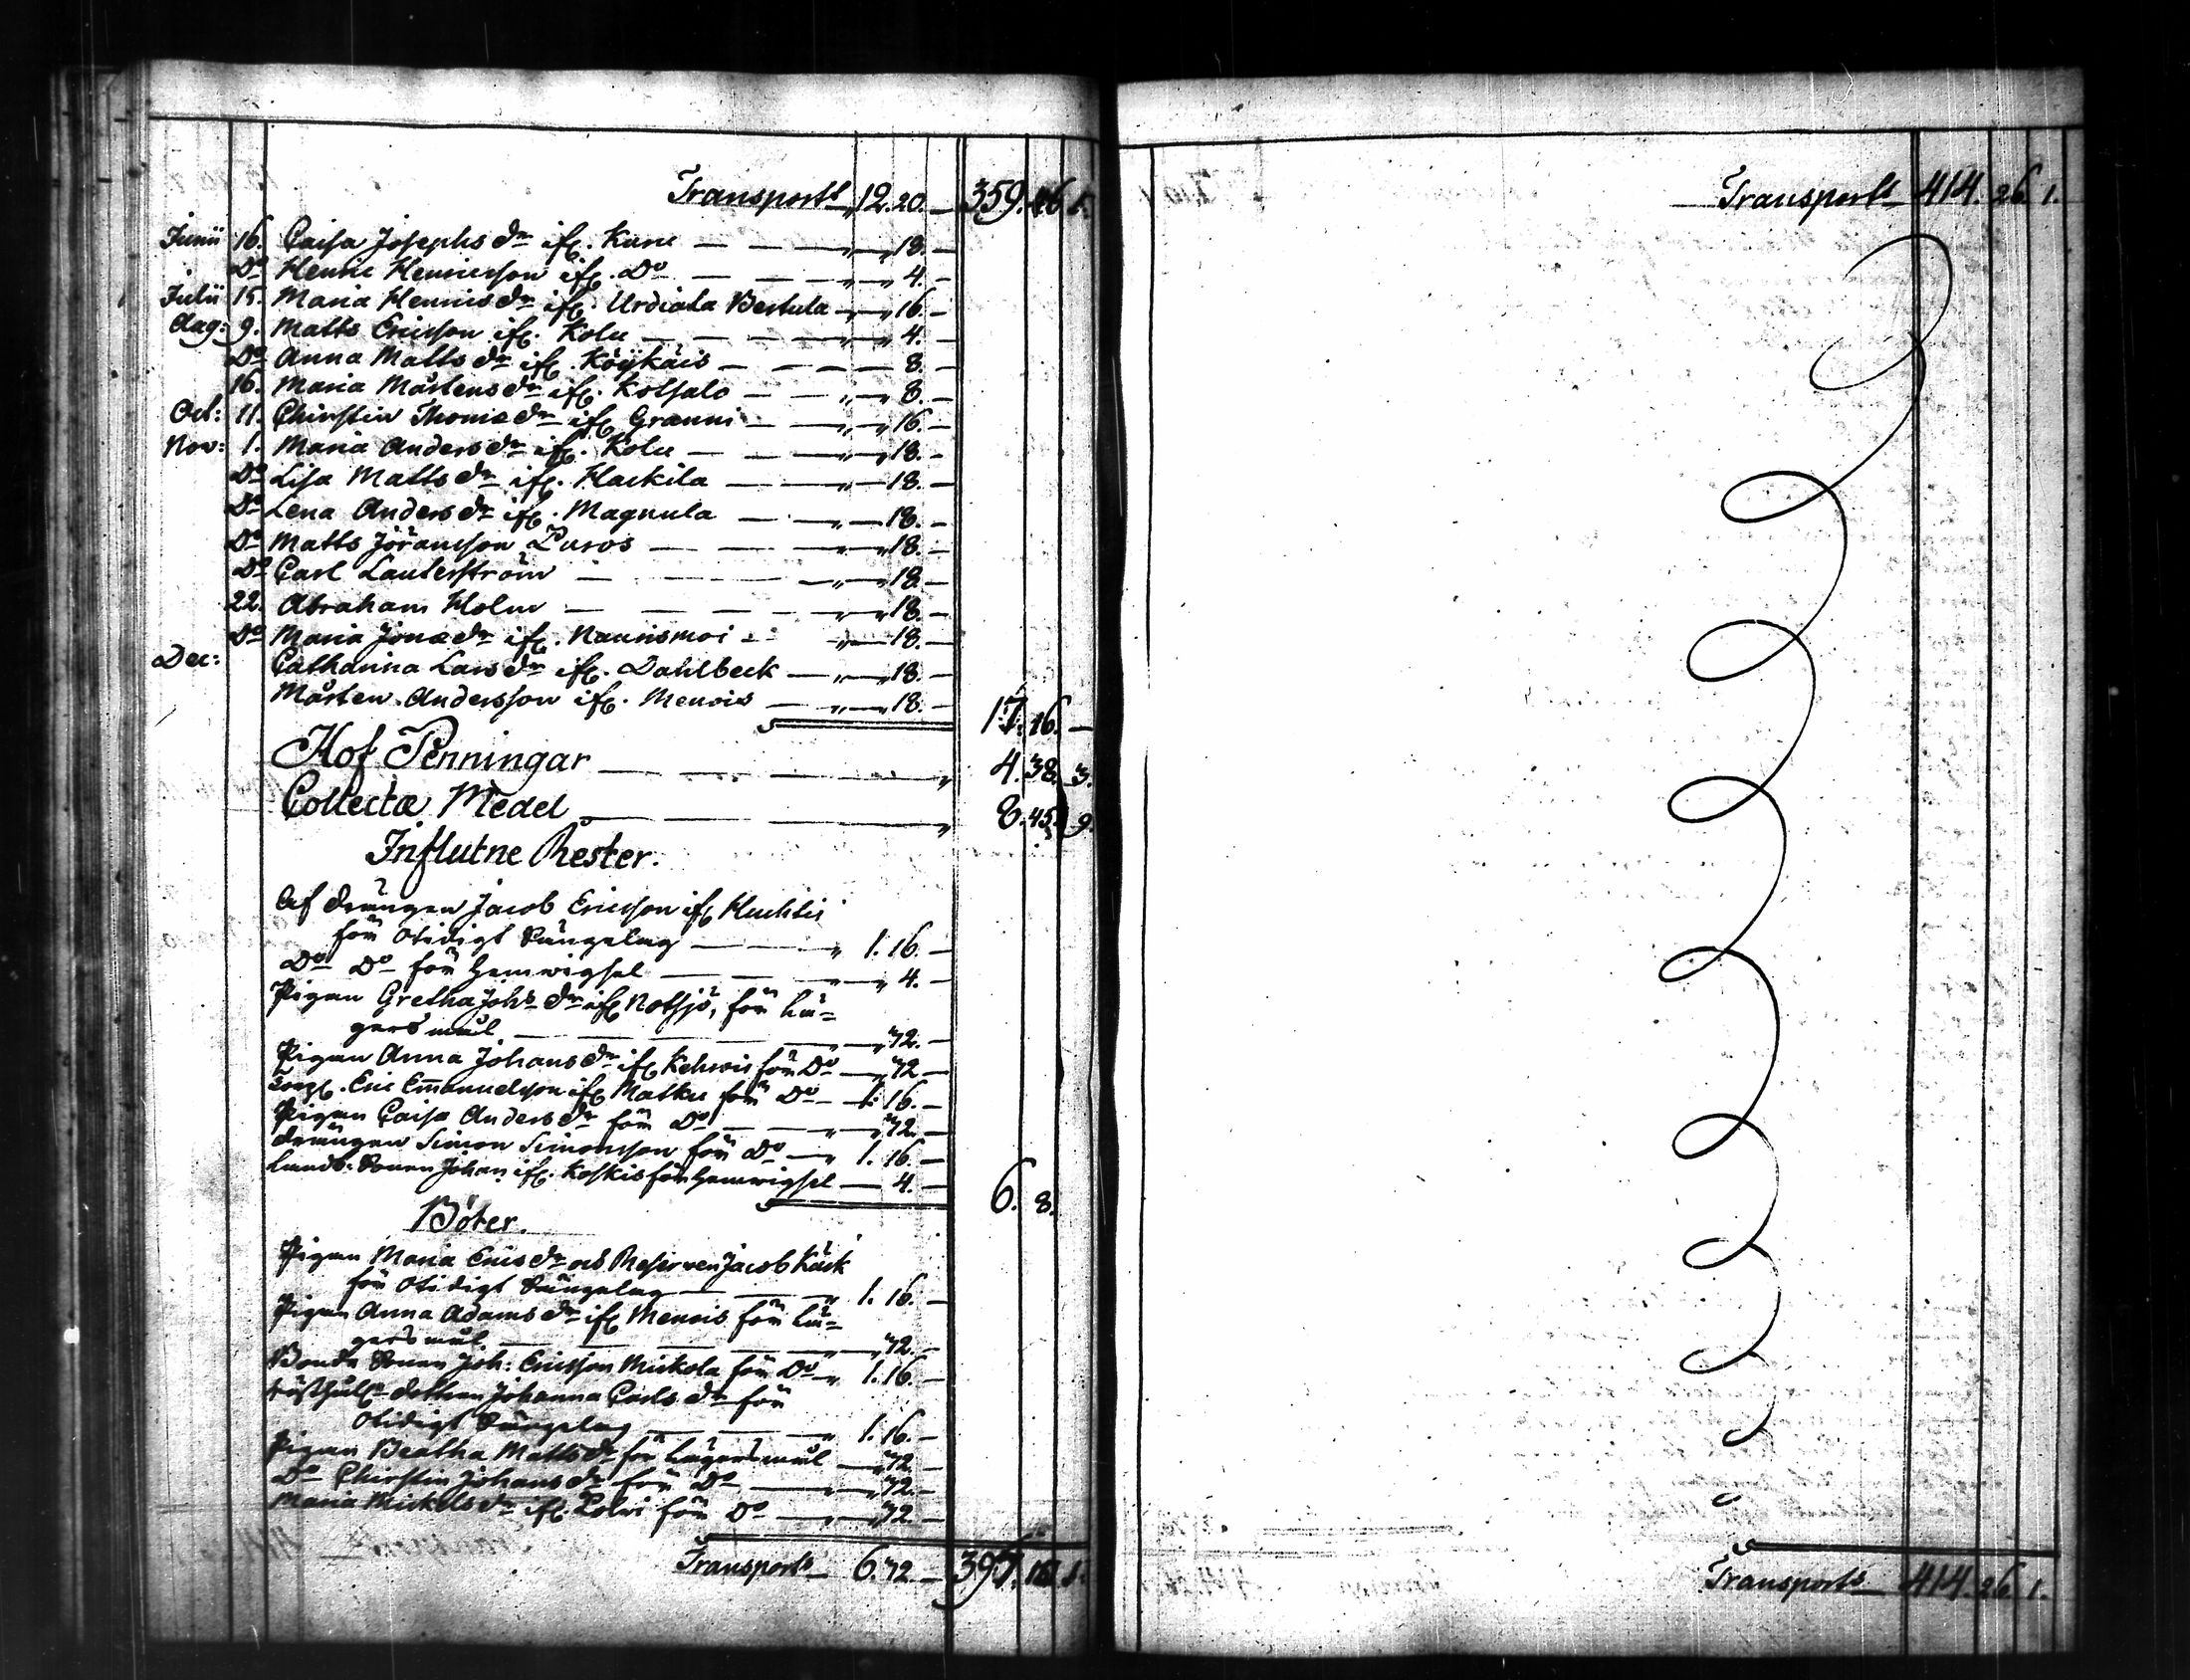 Transport „ 12. 20. — 359. 46
Junii 16. Caisa Josephs dr ifr. Kuru — — „ — „ 18. —
Do Henric Henricsson ifr. Do — — „ — „ 4. —
Julii 15. Maria Henrics dr ifr. Urdiala Bertula — „ — „ 16. —
Aug: 9. Matts Ericsson ifr. Kolu — — „ — „ 4. —
Do Anna Matts dr ifr. Köykäis — — — — 8. —
16. Maria Mårtens dr ifr. Kotsalo — — „ — 8. —
Oct: 11. Chirstin Thomæ dr ifr. Granni — — „ — „ 16. —
Nov: 1. Maria Anders dr ifr. Kolu — — „ — „ 18. —
Do Lisa Matts dr ifr. Hackila — — „ — 18. —
Do Lena Anders dr ifr. Magnula — — „ — 18. —
Do Matts Jöransson Puros — — „ — „ 18. —
Do Carl Lauterström — — — „ — „ 18. —
22. Abraham Holm — — — — „ — „ 18. —
Do Maria Jonæ dr ifr. — „ — 18. —
Dec: Catharina Lars dr ifr. Dahlbeck — „ — „ 18. —
Mårten Andersson ifr. Menois — „ — „ 18. — 17. 16. —
Hof Penningar — — — — „ 4. 38. 3.
Collectæ Medel — — — „ 8. 45. 9.
Influtne Rester.
Af drängen Jacob Ericsson ifr Huchtis
för Otidigt Sängelag — — — „ 1. 16. —
Do Do för hemvigsel — — — „ „ 4. —
Pigan Gretha Johs dr ifr Notsjö, för Lä=
gersmål — — — — — „ 72. —
Pigan Anna Johans dr ifr för Do — „ 72 —
Eric Emanuelsson ifr Matku för Do — 1. 16. —
Pigan Caisa Anders dr för Do — — „ — „ 72. —
drängen Simon Simonsson för Do — „ 1. 16. —
Lands: Sonen Johan ifr. Koskis för hemvigsel — 4. — 6. 8.
Böter.
Pigan Maria Erics dr och Reserven Jacob Käck
för Otidigt Sängelag — — — „ 1. 16. —
Pigan Anna Adams dr ifr Menois för Lä=
gersmål — — — — — „ 72. —
Bonde Sonen Joh: Ericsson Mickola för Do — „ 1. 16. —
dottren Johanna Carls dr för
Otidigt Sängelag — — — „ 1. 16. —
Pigan Beatha Matts dr för Lägersmål — „ 72 —
Do Chirstin Johans dr för Do — — „ 72. —
Maria Mickels dr ifr. Polvi för Do — „ — „ 72. —
Transport 6. 72. —
Transport 414. 26. 1.
Transport 414. 26. 1.